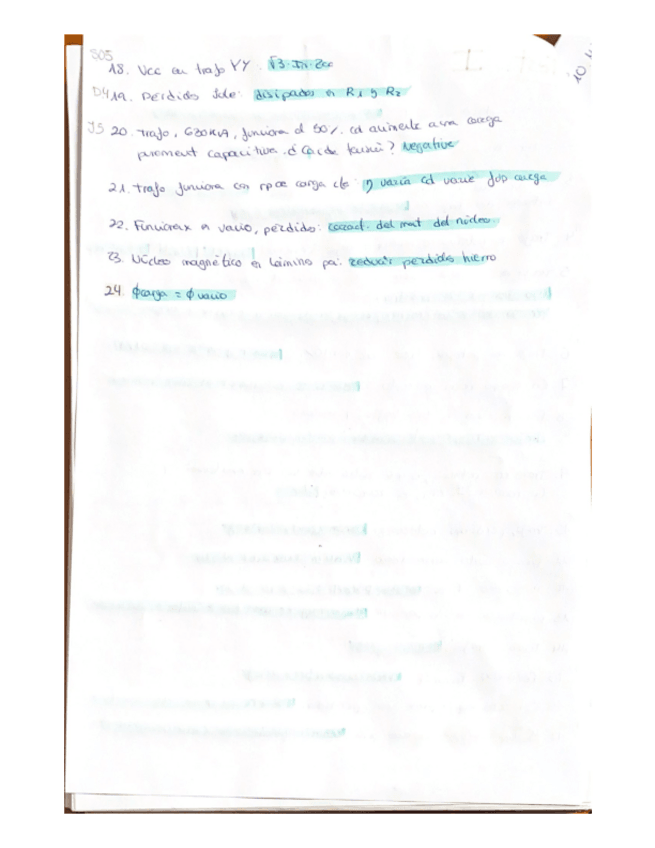 S05
18. Vcc en trafo YY: √3·In·Zcc
D4 19. Pérdidas Joule: disipadas en R1 y R2
J5 20. Trafo, 630KVA, funciona al 50% cd alimenta a una carga
purament capacitiva. ¿Caída tensión? Negativa
21. Trafo funciona con fp carga cte: η varía cd varíe fdp carga
22. Funciona x en vacío, pérdidas: caract. del mat del núcleo
23. Núcleo magnético en lámina pa: reducir pérdidas hierro
24. ϕcarga = ϕvacío
10.